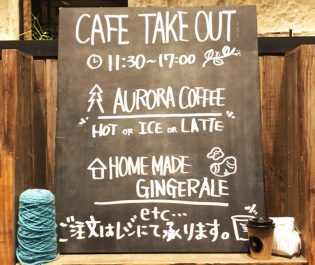 CAFE TAKE OUT
11:30~17:00
AURORA COFFEE
HOT or ICE or LATTE
HOME MADE
GINGERALE
etc...
ご注文はレジにて承ります。